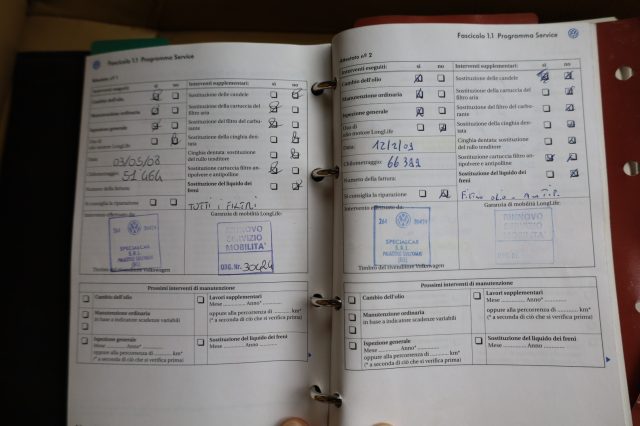 Fascicolo 1.1 Programma Service
Attestato nº 1
Interventi eseguiti: sì no
Cambio dell'olio
Manutenzione ordinaria
Ispezione generale
Uso di
olio motore LongLife
Data: 03/05/08
Chilometraggio: 51464
Numero della fattura:
Si consiglia la riparazione
Interventi supplementari: sì no
Sostituzione delle candele
Sostituzione della cartuccia del
filtro aria
Sostituzione del filtro del carbu-
rante
Sostituzione della cinghia den-
tata
Cinghia dentata: sostituzione
del rullo tenditore
Sostituzione cartuccia filtro an-
tipolvere e antipolline
Sostituzione del liquido dei
freni
TUTTI I FILTRI
Intervento effettuato da:
Garanzia di mobilità LongLife:
SPECIALCAR
S.R.L.
RINNOVO
SERVIZIO
MOBILITA'
ORG. Nr. 30424
Timbro del rivenditore Volkswagen
Prossimi interventi di manutenzione
Cambio dell'olio
Manutenzione ordinaria
in base a indicatore scadenze variabili
Ispezione generale
Mese ............ Anno ............
oppure alla percorrenza di ............ km*
(* a seconda di ciò che si verifica prima)
Lavori supplementari
Mese ............ Anno* ............
oppure alla percorrenza di ............ km
(* a seconda di ciò che si verifica prima)
Sostituzione del liquido dei freni
Mese ............ Anno ............
Fascicolo 1.1 Programma Service
Attestato nº 2
Interventi eseguiti: sì no
Cambio dell'olio
Manutenzione ordinaria
Ispezione generale
Uso di
olio motore LongLife
Data: 12/2/09
Chilometraggio:
Numero della fattura:
Si consiglia la riparazione
Interventi supplementari: sì no
Sostituzione delle candele
Sostituzione della cartuccia del
filtro aria
Sostituzione del filtro del carbu-
rante
Sostituzione della cinghia den-
tata
Cinghia dentata: sostituzione
del rullo tenditore
Sostituzione cartuccia filtro an-
tipolvere e antipolline
Sostituzione del liquido dei
freni
Intervento effettuato da:
Garanzia di mobilità LongLife:
SPECIALCAR
S.R.L.
RINNOVO
SERVIZIO
MOBILITA'
ORG. Nr.
Timbro del rivenditore Volkswagen
Prossimi interventi di manutenzione
Cambio dell'olio
Manutenzione ordinaria
in base a indicatore scadenze variabili
Ispezione generale
Mese ............ Anno ............
oppure alla percorrenza di ............ km*
(* a seconda di ciò che si verifica prima)
Lavori supplementari
Mese ............ Anno* ............
oppure alla percorrenza di ............ km
(* a seconda di ciò che si verifica prima)
Sostituzione del liquido dei freni
Mese ............ Anno ............